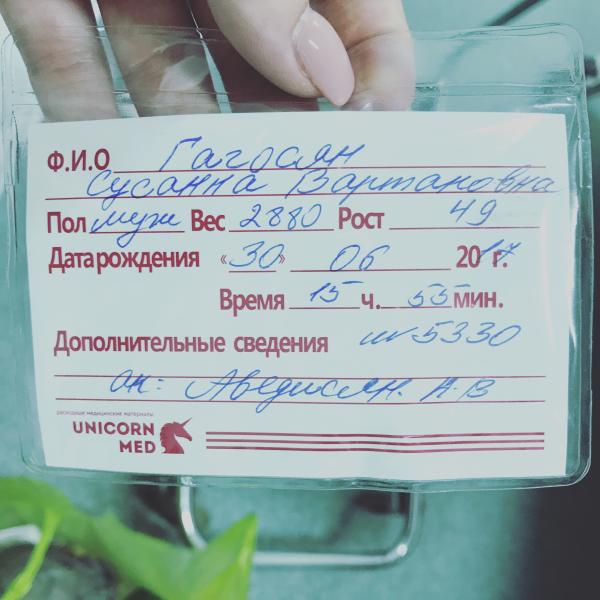 Ф.И.О Гагосян
Сусанна Вартановна
Пол муж Вес 2880 Рост 49
Дата рождения «30» 06 2017 г.
Время 15 ч. 55 мин.
Дополнительные сведения и/б 5330
ак: Аведисян. А.В
расходные медицинские материалы
UNICORN
MED